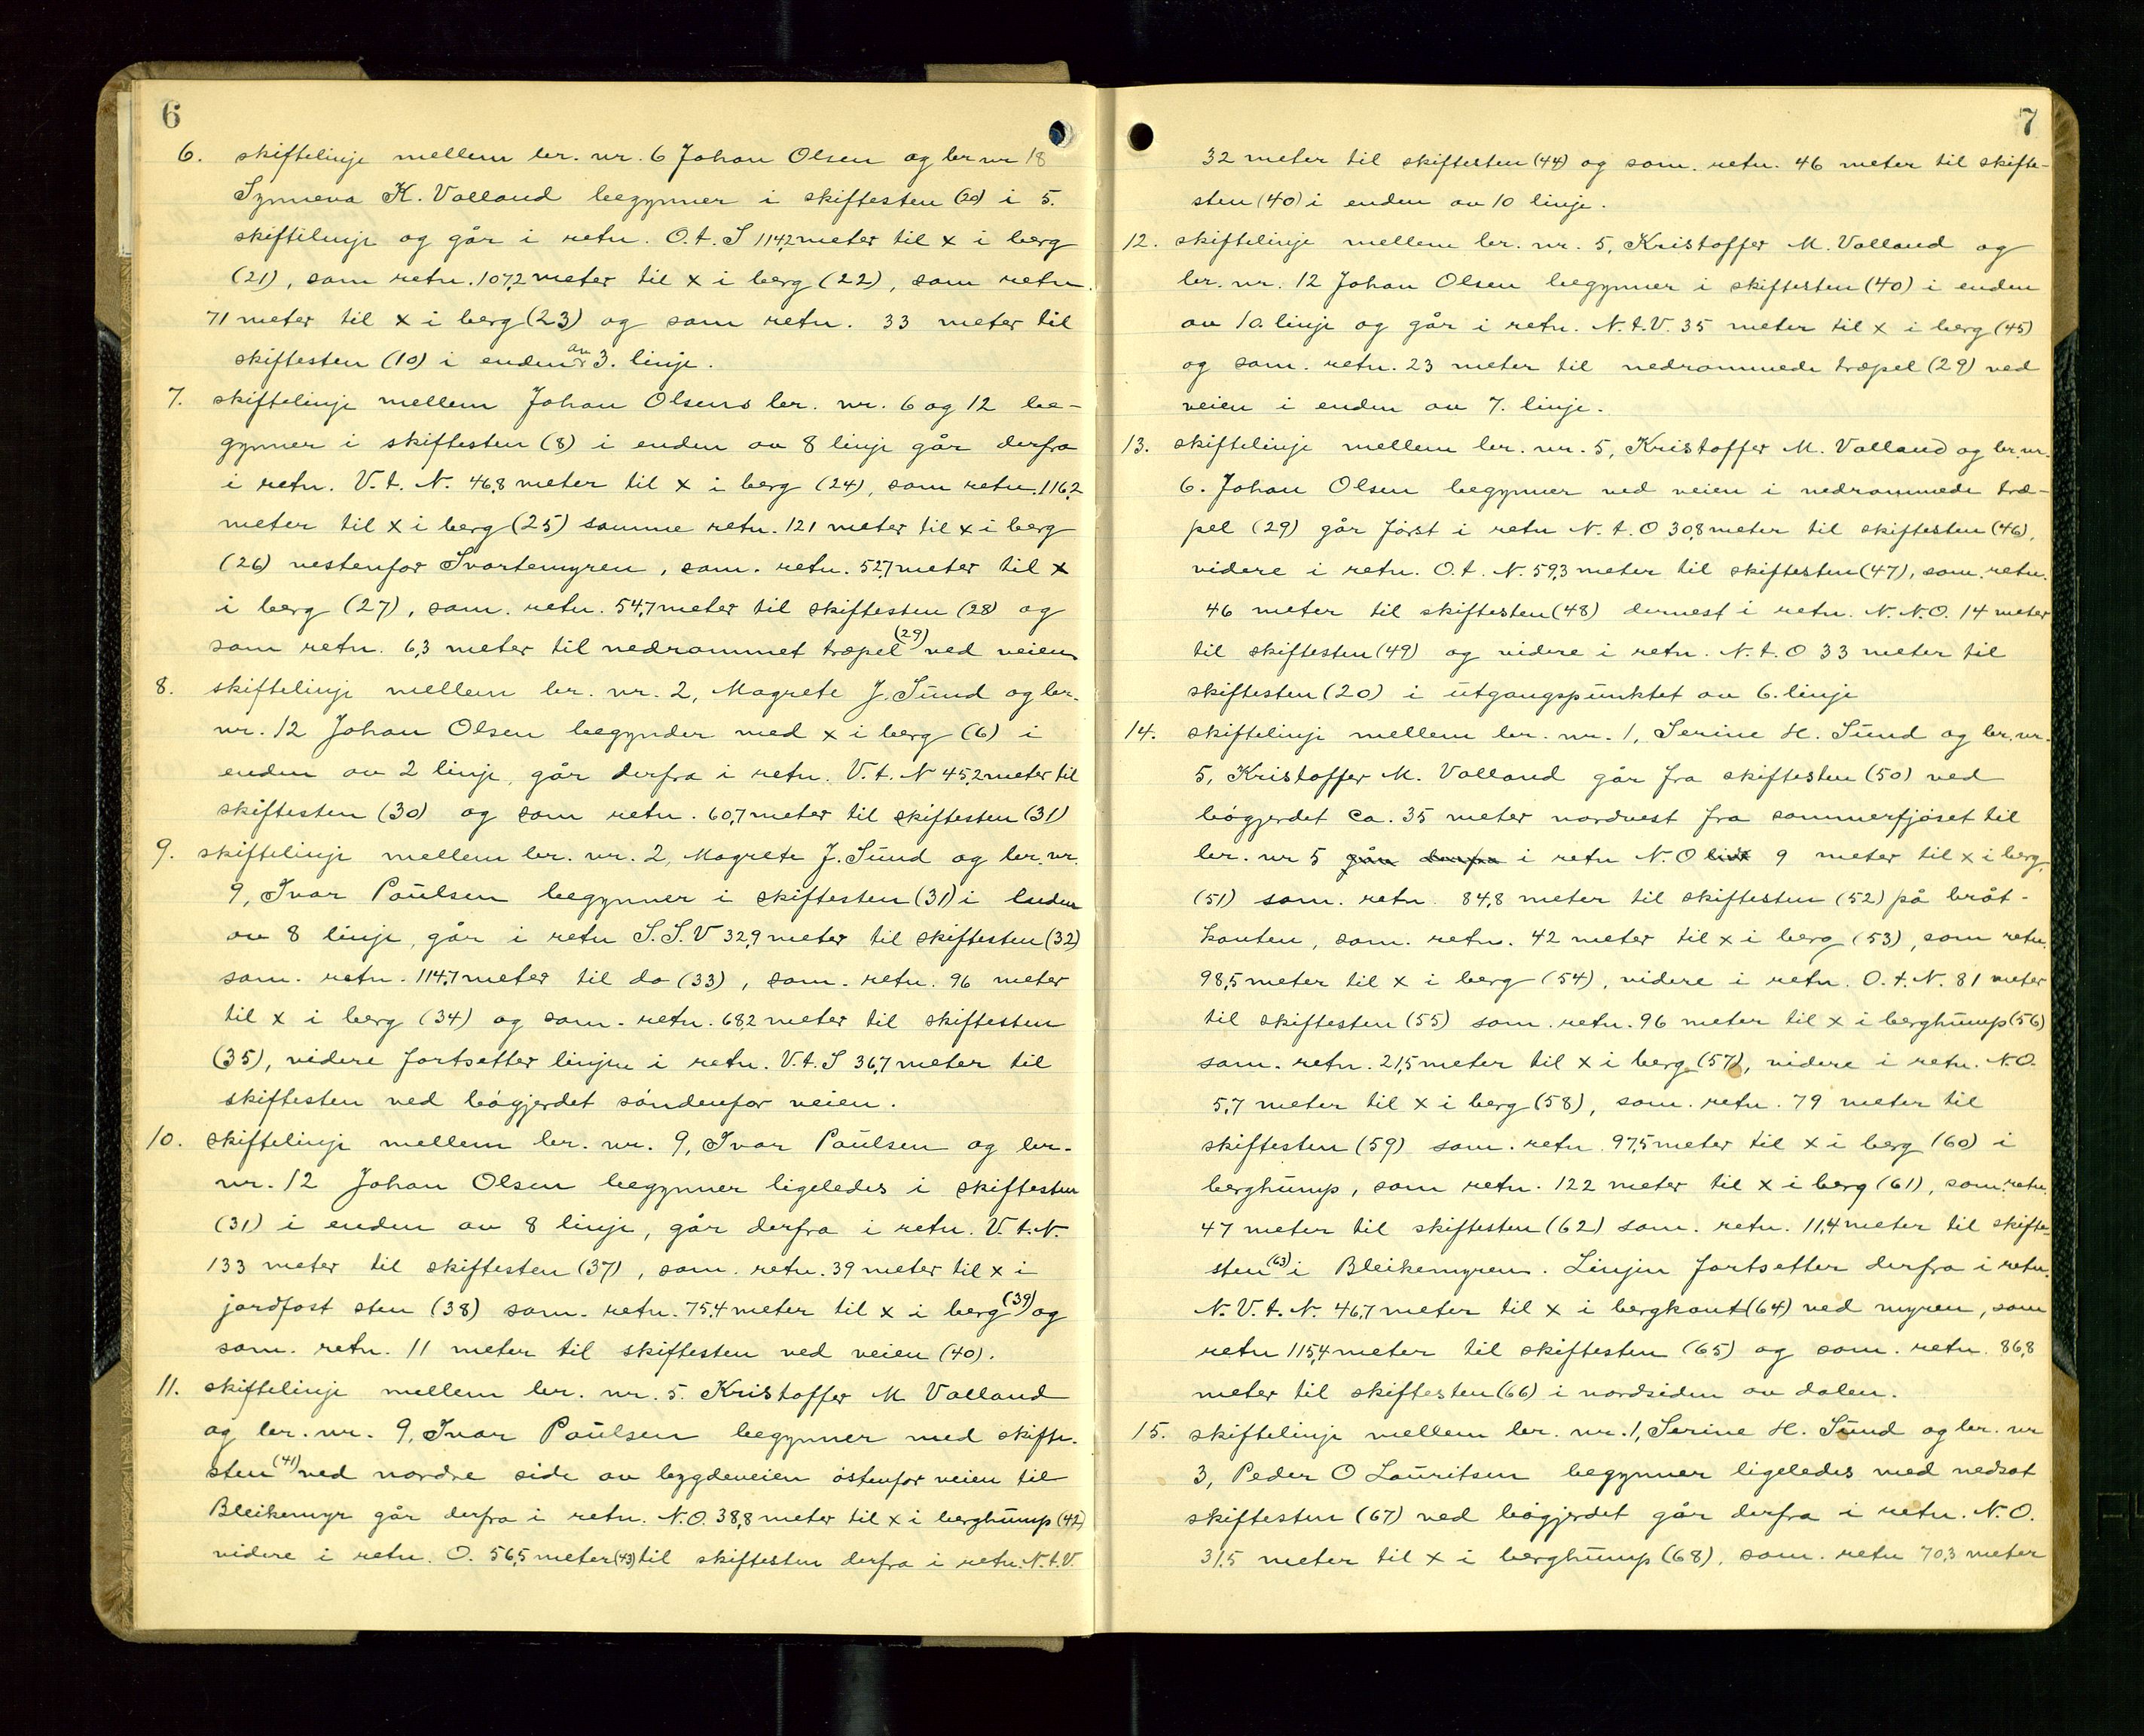 6
6. skiftelinje mellem br. nr. 6 Johan Olsen og br nr 18
Synneva K. Valland begynner i skiftesten (20) i 5.
skiftilinje og går i retn. O.t.S 114,2 meter til x i berg
(21), sam retn. 107,2 meter til x i berg (22), sam retn.
71 meter til x i berg (23) og sam retn. 33 meter til
skiftesten (10) i enden av 3. linje.
7. skiftelinje mellem Johan Olsens br. nr. 6 og 12 be-
gynner i skiftesten (8) i enden av 8 linje går derfra
i retn. V.t. N. 46,8 meter til x i berg (24), sam retn. 116,2
meter til x i berg (25) samme retn. 121 meter til x i berg
(26) vestenfor Svartemyren, sam. retn. 52,7 meter til x
i berg (27), sam. retn. 54,7 meter til skiftesten (28) og
sam retn. 6,3 meter til nedrammet træpel (29) ved veien
8. skiftelinje mellem br. nr. 2, Magrete J. Sund og br.
nr. 12 Johan Olsen begynder med x i berg (6) i
enden av 2 linje, går derfra i retn. V.t. N 45,2 meter til
skiftesten (30) og sam retn. 60,7 meter til skiftesten (31)
9. skiftelinje mellem br. nr. 2, Magrete J. Sund og br. nr.
9, Ivar Paulsen begynner i skiftesten (31) i enden
av 8 linje, går i retn S.S.V 32,9 meter til skiftesten (32)
sam. retn. 114,7 meter til do (33), sam. retn. 96 meter
til x i berg (34) og sam. retn. 68,2 meter til skiftesten
(35), videre fortsetter linjen i retn. V.t.S 36,7 meter til
skiftesten ved bögjerdet söndenfor veien.
10. skiftelinje mellem br. nr. 9, Ivar Paulsen og br.
nr. 12 Johan Olsen begynner ligeledes i skiftesten
(31) i enden av 8 linje, går derfra i retn. V.t.N.
133 meter til skiftesten (37), sam. retn. 39 meter til x i
jordfast sten (38) sam. retn. 75,4 meter til x i berg (39) og
sam. retn. 11 meter til skiftesten ved veien (40).
11. skiftelinje mellem br. nr. 5. Kristoffer M Valland
og br. nr. 9, Ivar Paulsen begynner med skifte-
sten (41) ved nordre side av bygdeveien östenfor veien til
Bleikemyr går derfra i retn. N.O. 38,8 meter til x i berghump (42)
videre i retn. O. 56,5 meter (43) til skiftesten derfra i retn. N.t.V.
7
32 meter til skiftesten (44) og sam. retn. 46 meter til skifte-
sten (40) i enden av 10 linje.
12. skiftelinje mellem br. nr. 5, Kristoffer M. Valland og
br. nr. 12 Johan Olsen begynner i skiftesten (40) i enden
av 10. linje og går i retn. N.t.V. 35 meter til x i berg (45)
og sam. retn. 23 meter til nedrammede træpel (29) ved
veien i enden av 7. linje.
13. skiftelinje mellem br. nr. 5, Kristoffer M. Valland og br. nr.
6. Johan Olsen begynner ved veien i nedrammede træ-
pel (29) går först i retn N.t.O 30,8 meter til skiftesten (46),
videre i retn. O.t. N. 59,3 meter til skiftesten (47), sam. retn.
46 meter til skiftesten (48) dernest i retn. N.N.O. 14 meter
til skiftesten (49) og videre i retn. N.t.O 33 meter til
skiftesten (20) i utgangspunktet av 6. linje
14. skiftelinje mellem br. nr. 1, Serine H. Sund og br. nr.
5, Kristoffer M. Valland går fra skiftesten (50) ved
bögjerdet ca. 35 meter nordvest fra sommerfjöset til
br. nr 5 går derfra i retn N.O 9 meter til x i berg,
(51) sam. retn. 84,8 meter til skiftesten (52) på bråt-
kanten, sam. retn. 42 meter til x i berg (53), sam retn.
98,5 meter til x i berg (54), videre i retn. O.t.N. 81 meter
til skiftesten (55) sam. retn. 96 meter til x i berghump (56)
sam. retn. 21,5 meter til x i berg (57), videre i retn. N.O.
5,7 meter til x i berg (58), sam. retn. 79 meter til
skiftesten (59) sam. retn. 97,5 meter til x i berg (60) i
berghump, sam retn. 122 meter til x i berg (61), sam. retn.
47 meter til skiftesten (62) sam. retn. 11,4 meter til skifte-
sten (63) i Bleikemyren. Linjen fortsetter derfra i retn.
N.V.t.N. 46,7 meter til x i bergkant (64) ved myren, sam
retn 115,4 meter til skiftesten (65) og sam. retn. 86,8
meter til skiftesten (66) i nordsiden av dalen.
15. skiftelinje mellem br. nr. 1, Serine H. Sund og br. nr
3, Peder O Lauritsen begynner ligeledes med nedsat
skiftesten (67) ved bögjerdet går derfra i retn. N.O.
31,5 meter til x i berghump (68), sam. retn 70,3 meter